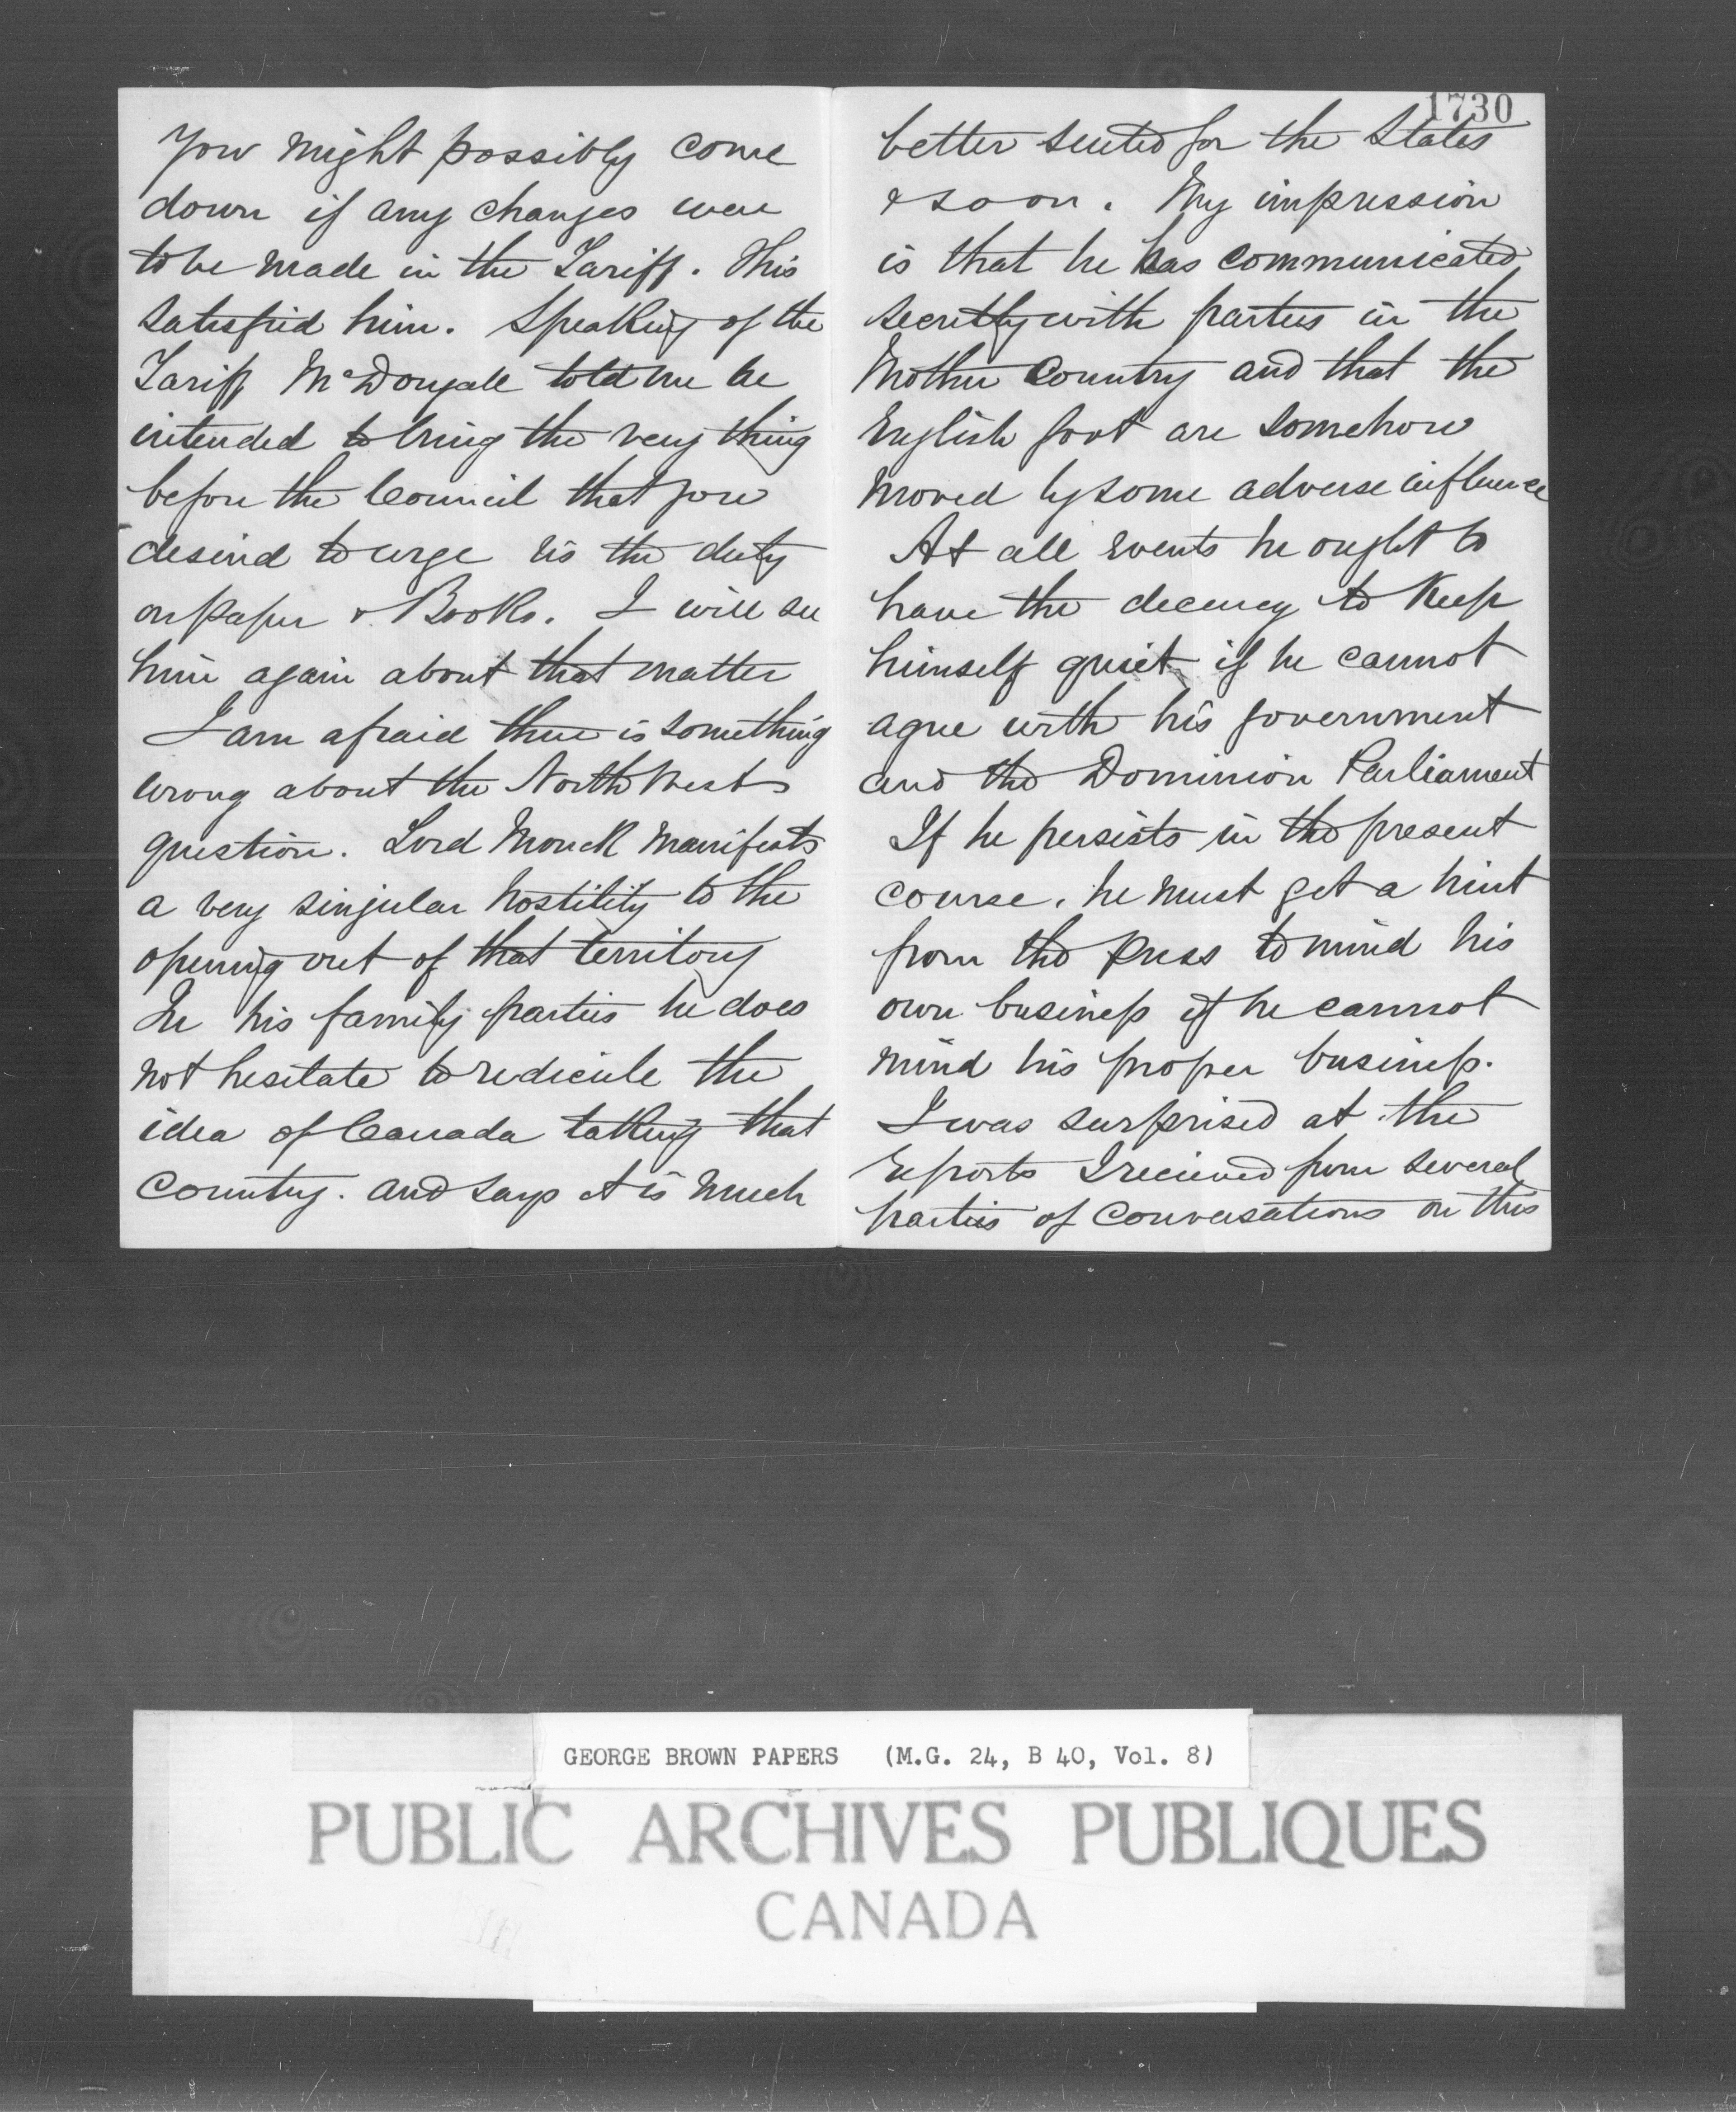 You might possibly come
down if any changes were
to be made in the Tariff. This
satisfied him. Speaking of the
Tariff McDougall told me he
intended to bring the very thing
before the Council that you
desired to urge viz the duty
on paper & Books. I will see
him again about that matter
I am afraid there is something
wrong about the North West
question. Lord Monck manifests
a very singular hostility to the
opening out of that territory
In his family parties he does
not hesitate to redicule the
idea of Canada taking that
country. and says it is much
1730
better suited for the States
& so on. My impression
is that he has communicated
secretly with parties in the
Mother Country and that the
English Govt are somehow
moved by some adverse influence
At all events he ought to
have the decency to keep
himself quiet if he cannot
agree with his government
and the Dominion Parliament
If he persists in the present
course, he must get a hint
from the press to mind his
own business if he cannot
mind his proper business.
I was surprised at the
reports I recieved from several
parties of conversations on this
GEORGE BROWN PAPERS (M.G. 24, B 40, Vol. 8)
PUBLIC ARCHIVES PUBLIQUES
CANADA